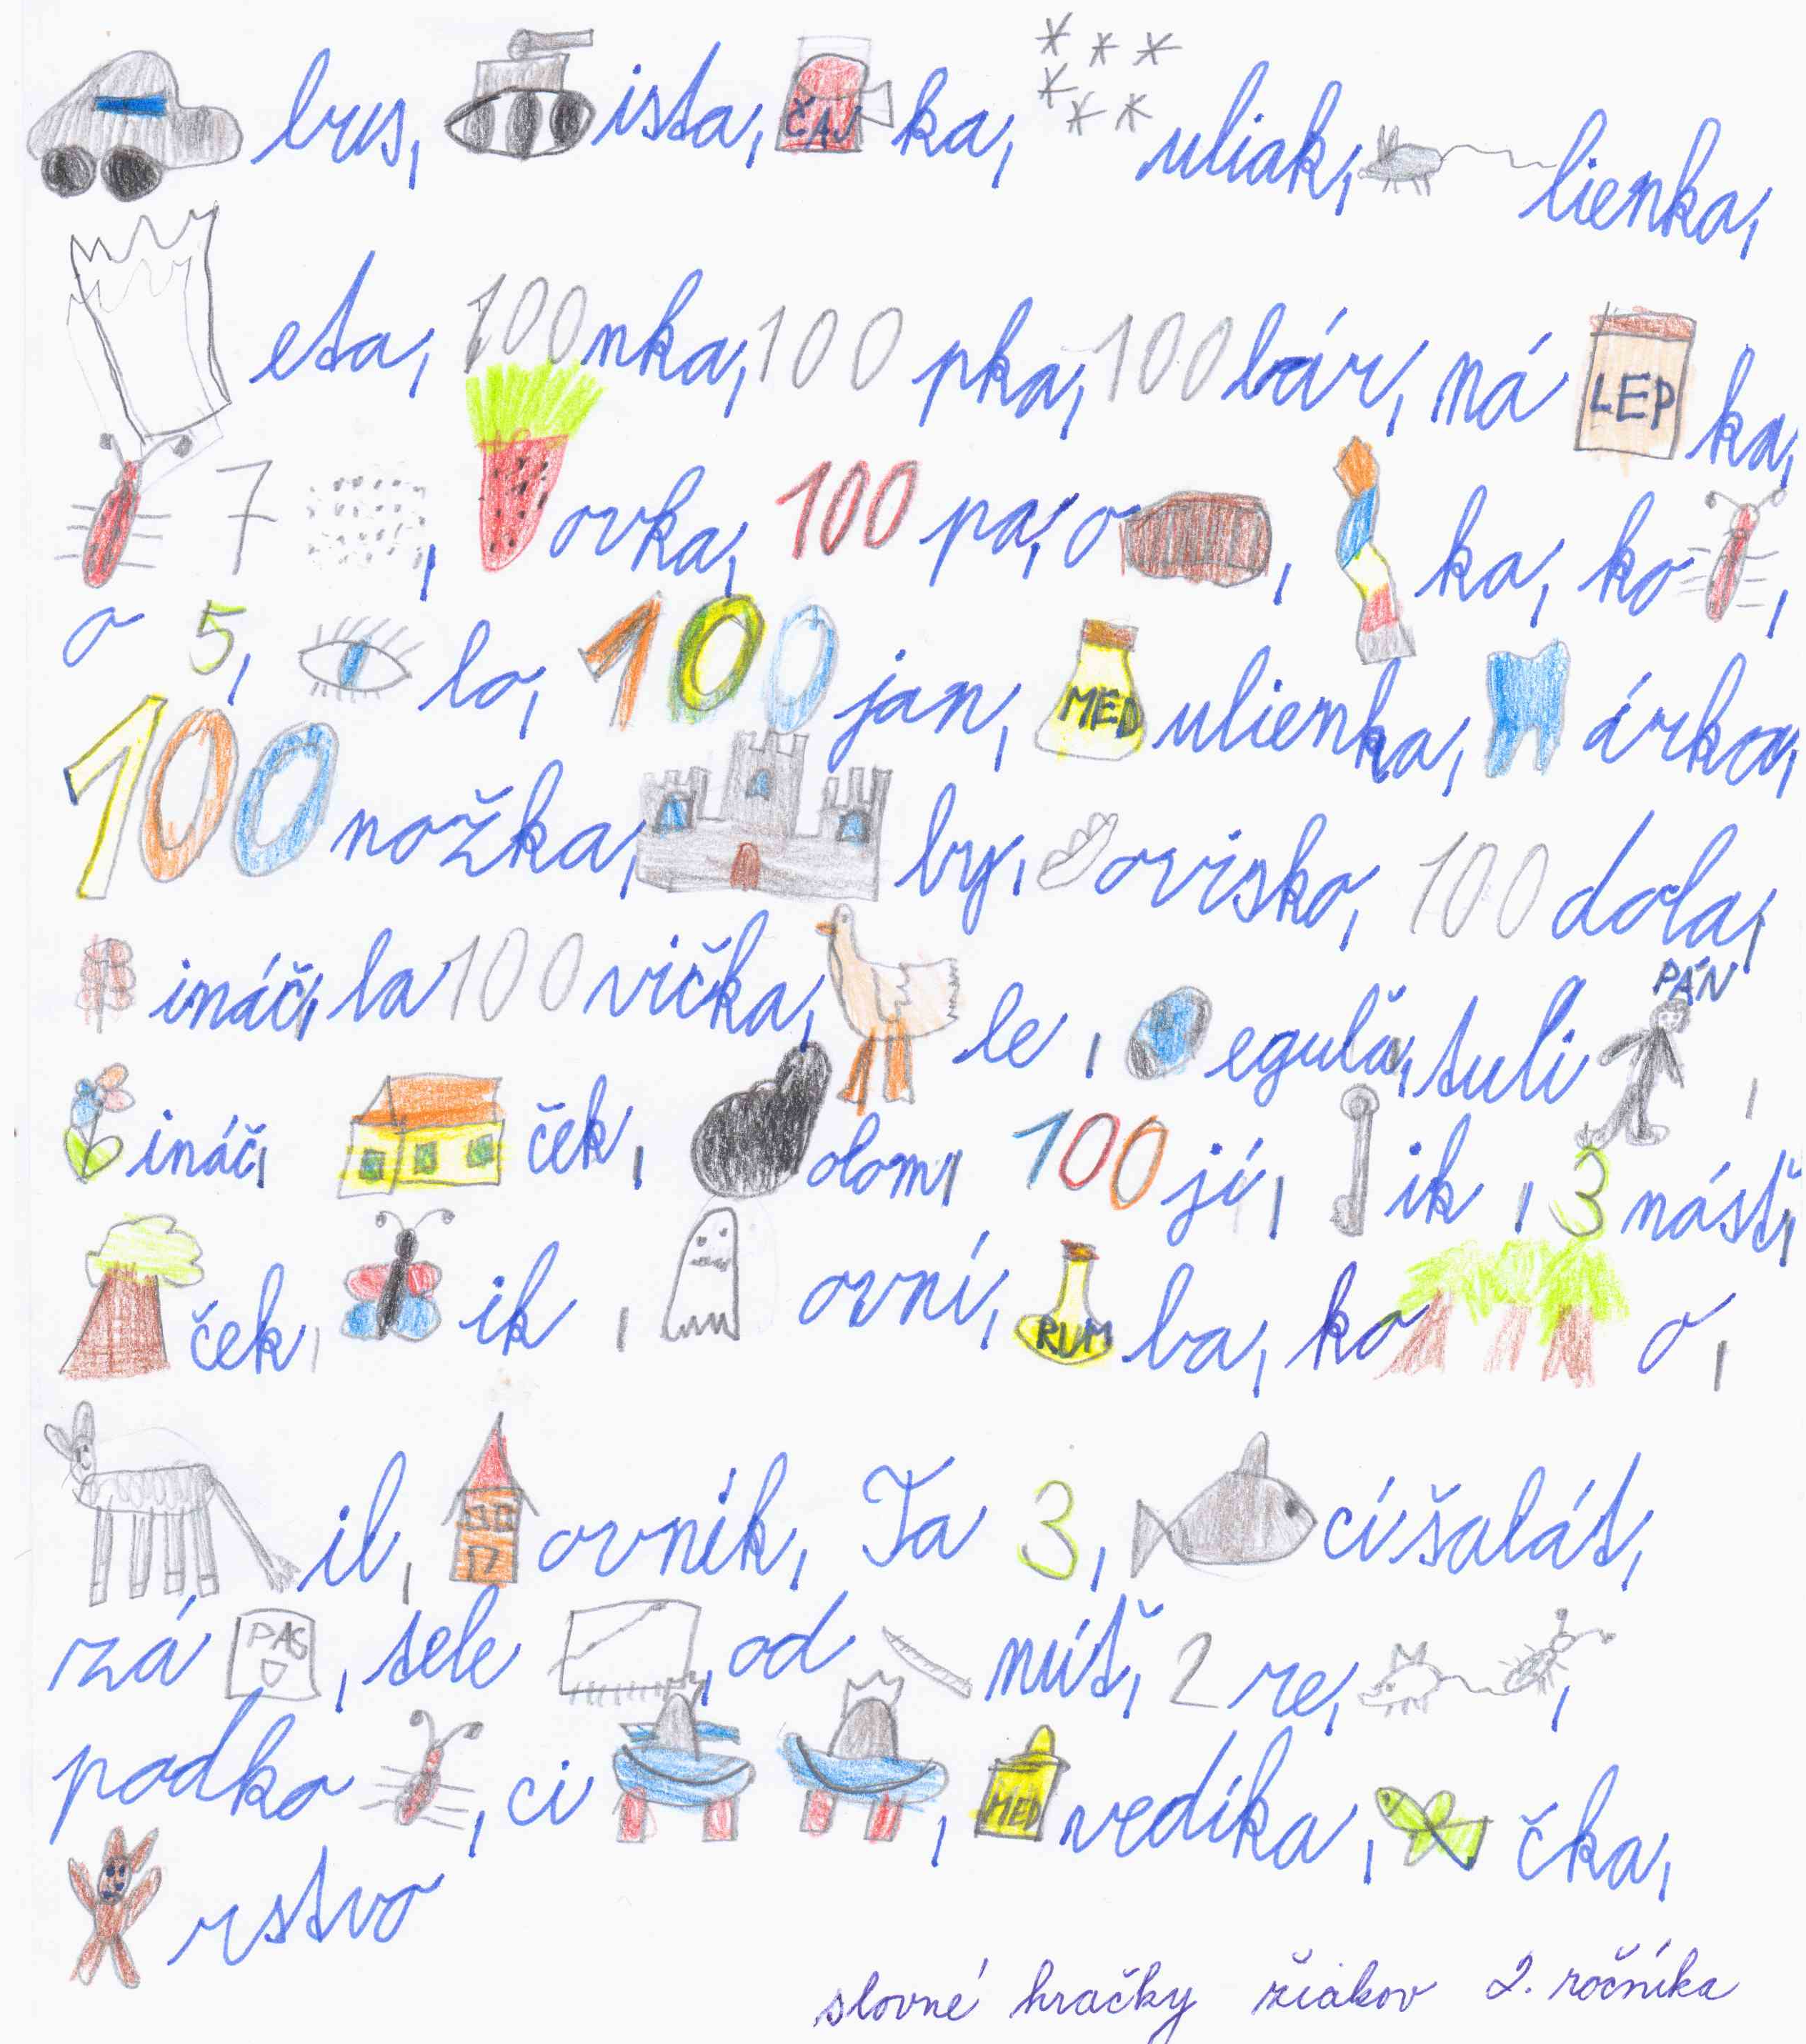 bus, ista, ČAJ ka, uliak, lienka,
eta, 100nka, 100 pka, 100lár, ná LEP ka,
7 , ovka, 100 pa, o , ka, ko ,
o 5, lo, 100 jan, MED ulienka, árka,
100 nožka, by, ovisko, 100 dola,
ináč, la100vička, le, eguľa, tuli PÁN ,
ináč, ček, olom, 100jí, ik, 3násť,
ček, ik, ovní, RUM ba, ko o,
il, ovník, Ta 3, cí šalát,
zá PAS , tele , od núť, 2 re, ,
podko , ci , MED vedíka, čka,
rstvo
slovné hračky žiakov 2. ročníka